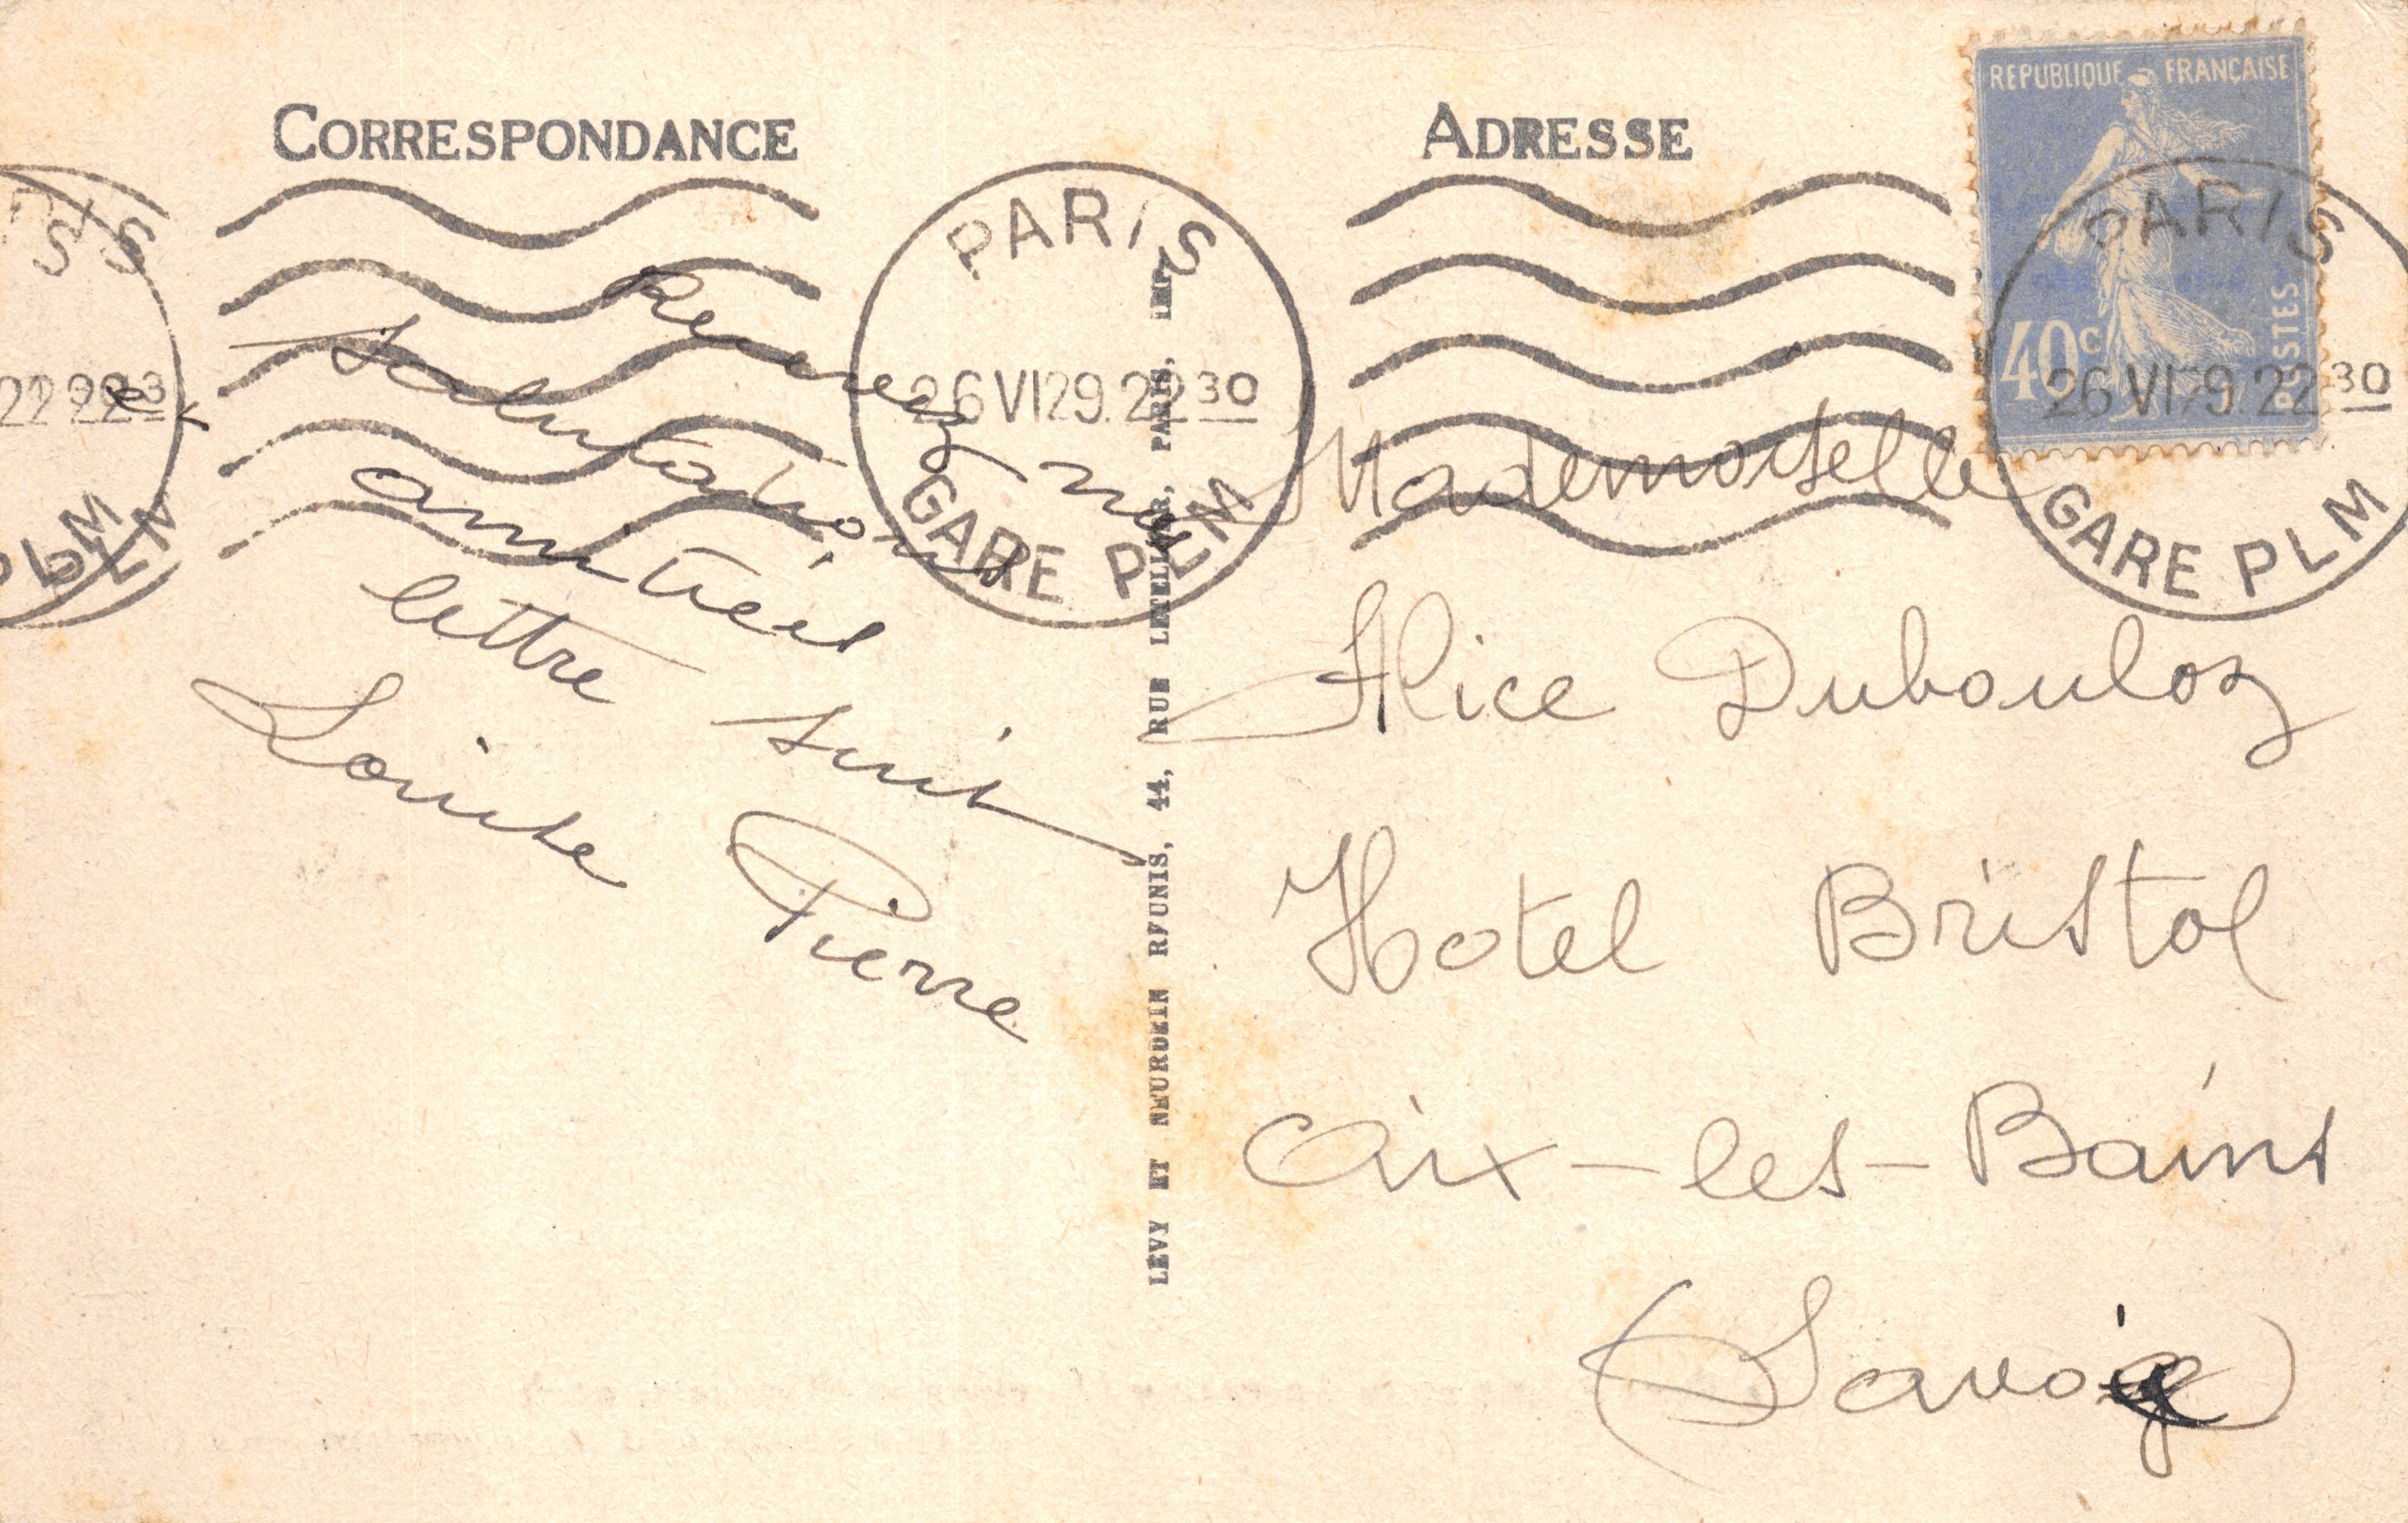 CORRESPONDANCE
Recevez nos
salutations
amitiés
lettre suit
Louise
Pierre
PARIS
26 VI 29. 22 30
GARE PLM
LEVY ET NEURDEIN REUNIS, 44, RUE LETELLIER, PARIS, IMP.
ADRESSE
REPUBLIQUE FRANÇAISE
40c
POSTES
PARIS
26 VI 29. 22 30
GARE PLM
Mademoiselle
Alice Dubouloz
Hotel Bristol
Aix-les-Bains
(Savoie)